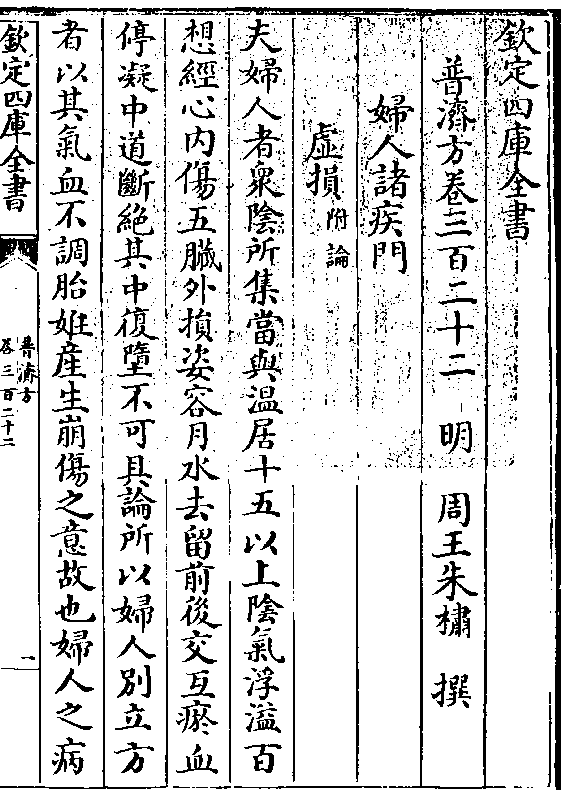 欽定四庫全書
普濟方卷三百二十二　明　周王朱橚　撰
婦人諸疾門
虛損附論
夫婦人者衆陰所集當與温居十五以上陰氣浮溢百
想經心内傷五臟外損姿容月水去留前後交互瘀血
停凝中道斷絶其中復墮不可具論所以婦人別立方
者以其氣血不調胎姙産生崩傷之意故也婦人之病
欽定四庫全書
普濟方
卷三百二十二
一